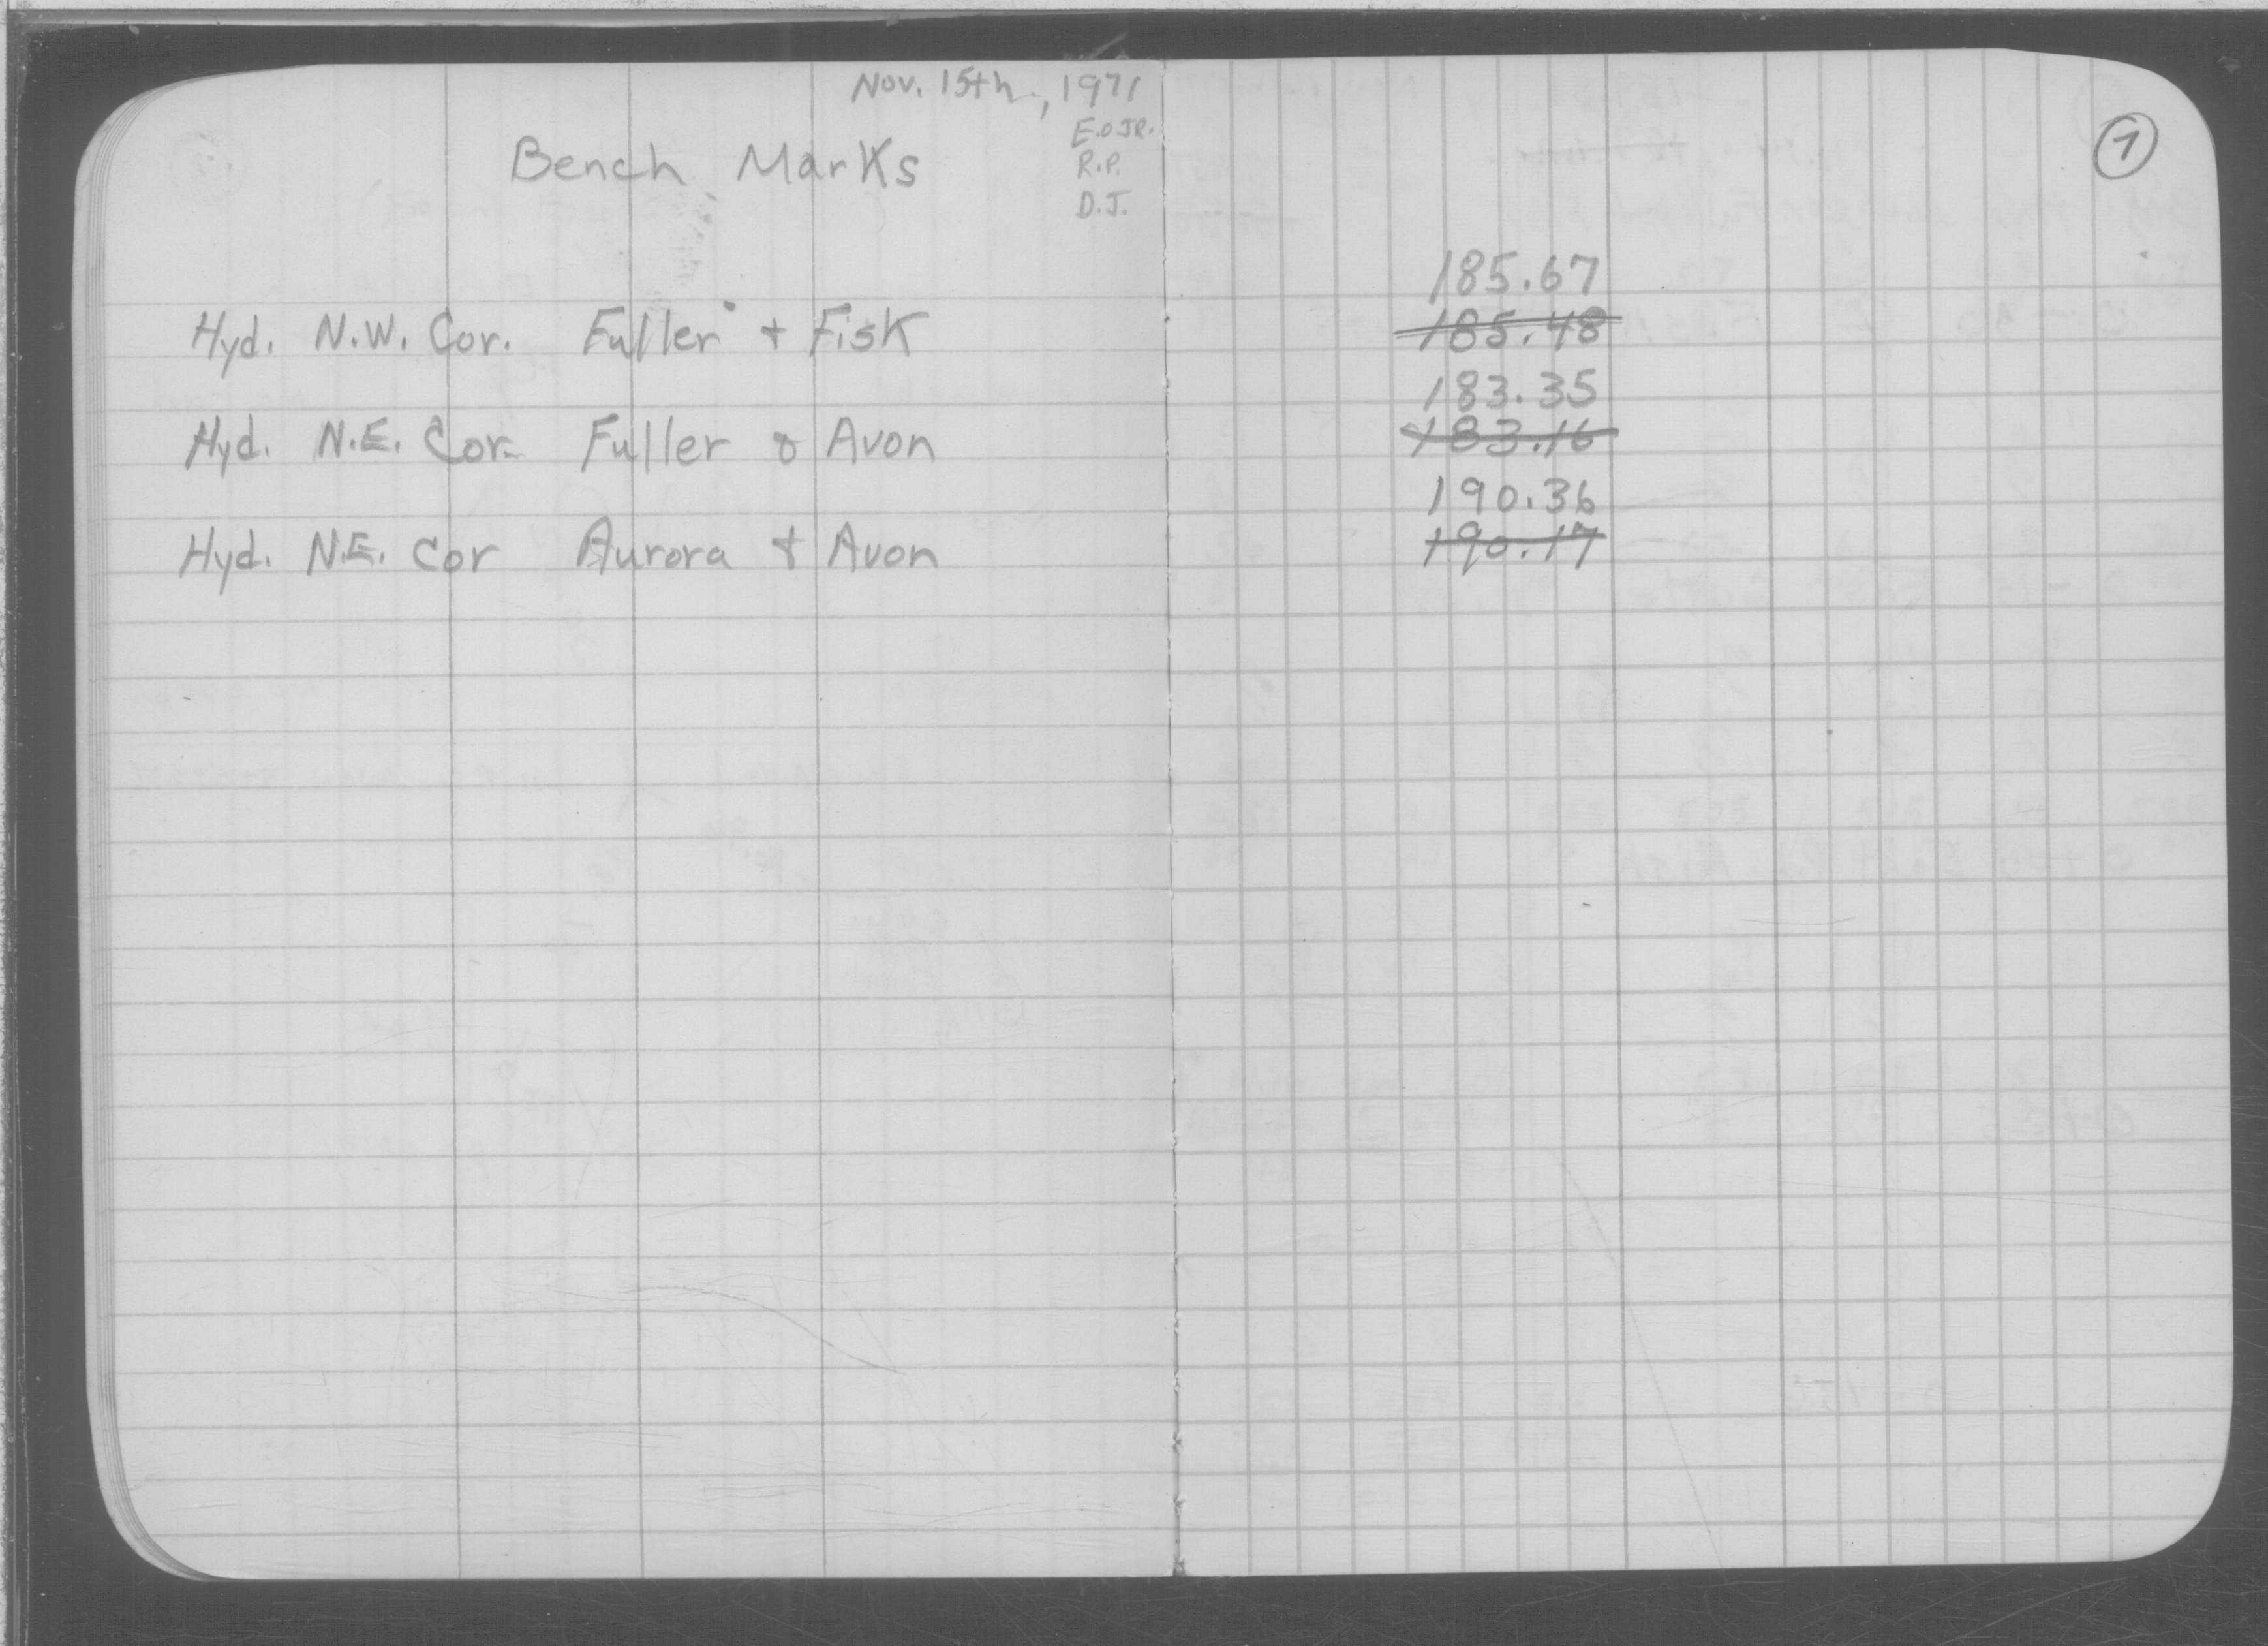 Nov. 15th., 1971
E.O JR.
Bench Marks
R.P.
D.J.
1
185.67
Hyd. N.W. Cor. Fuller + Fisk 185.48
183.35
Hyd. N.E. Cor. Fuller & Avon 183.16
190.36
Hyd. N.E. Cor Aurora & Avon 190.17